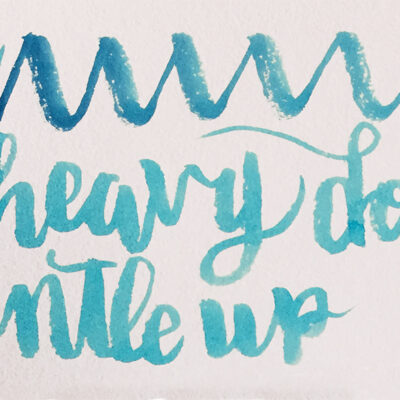 heavy do
ntle up